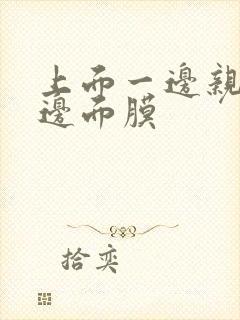 上而一邊親
邊而膜
拾奕